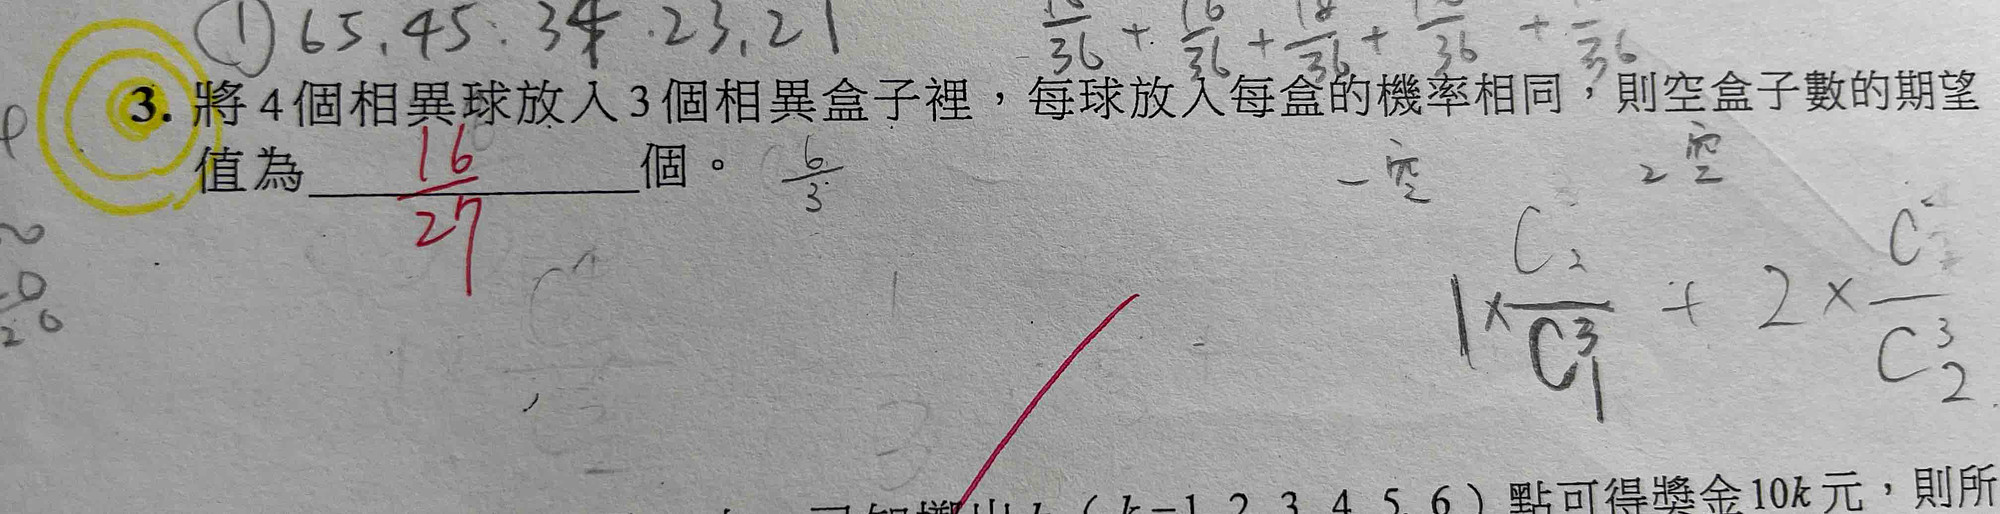 ① 65,45.34.23,21
36 + 36 + 36 + 36 + 36
3. 將4個相異球放入3個相異盒子裡，每球放入每盒的機率相同，則空盒子數的期望
值為 16/27 個。 6/3
一空 2空
1×C₂/C³₁ + 2×C/C³₂
20
點可得獎金10k元，則所